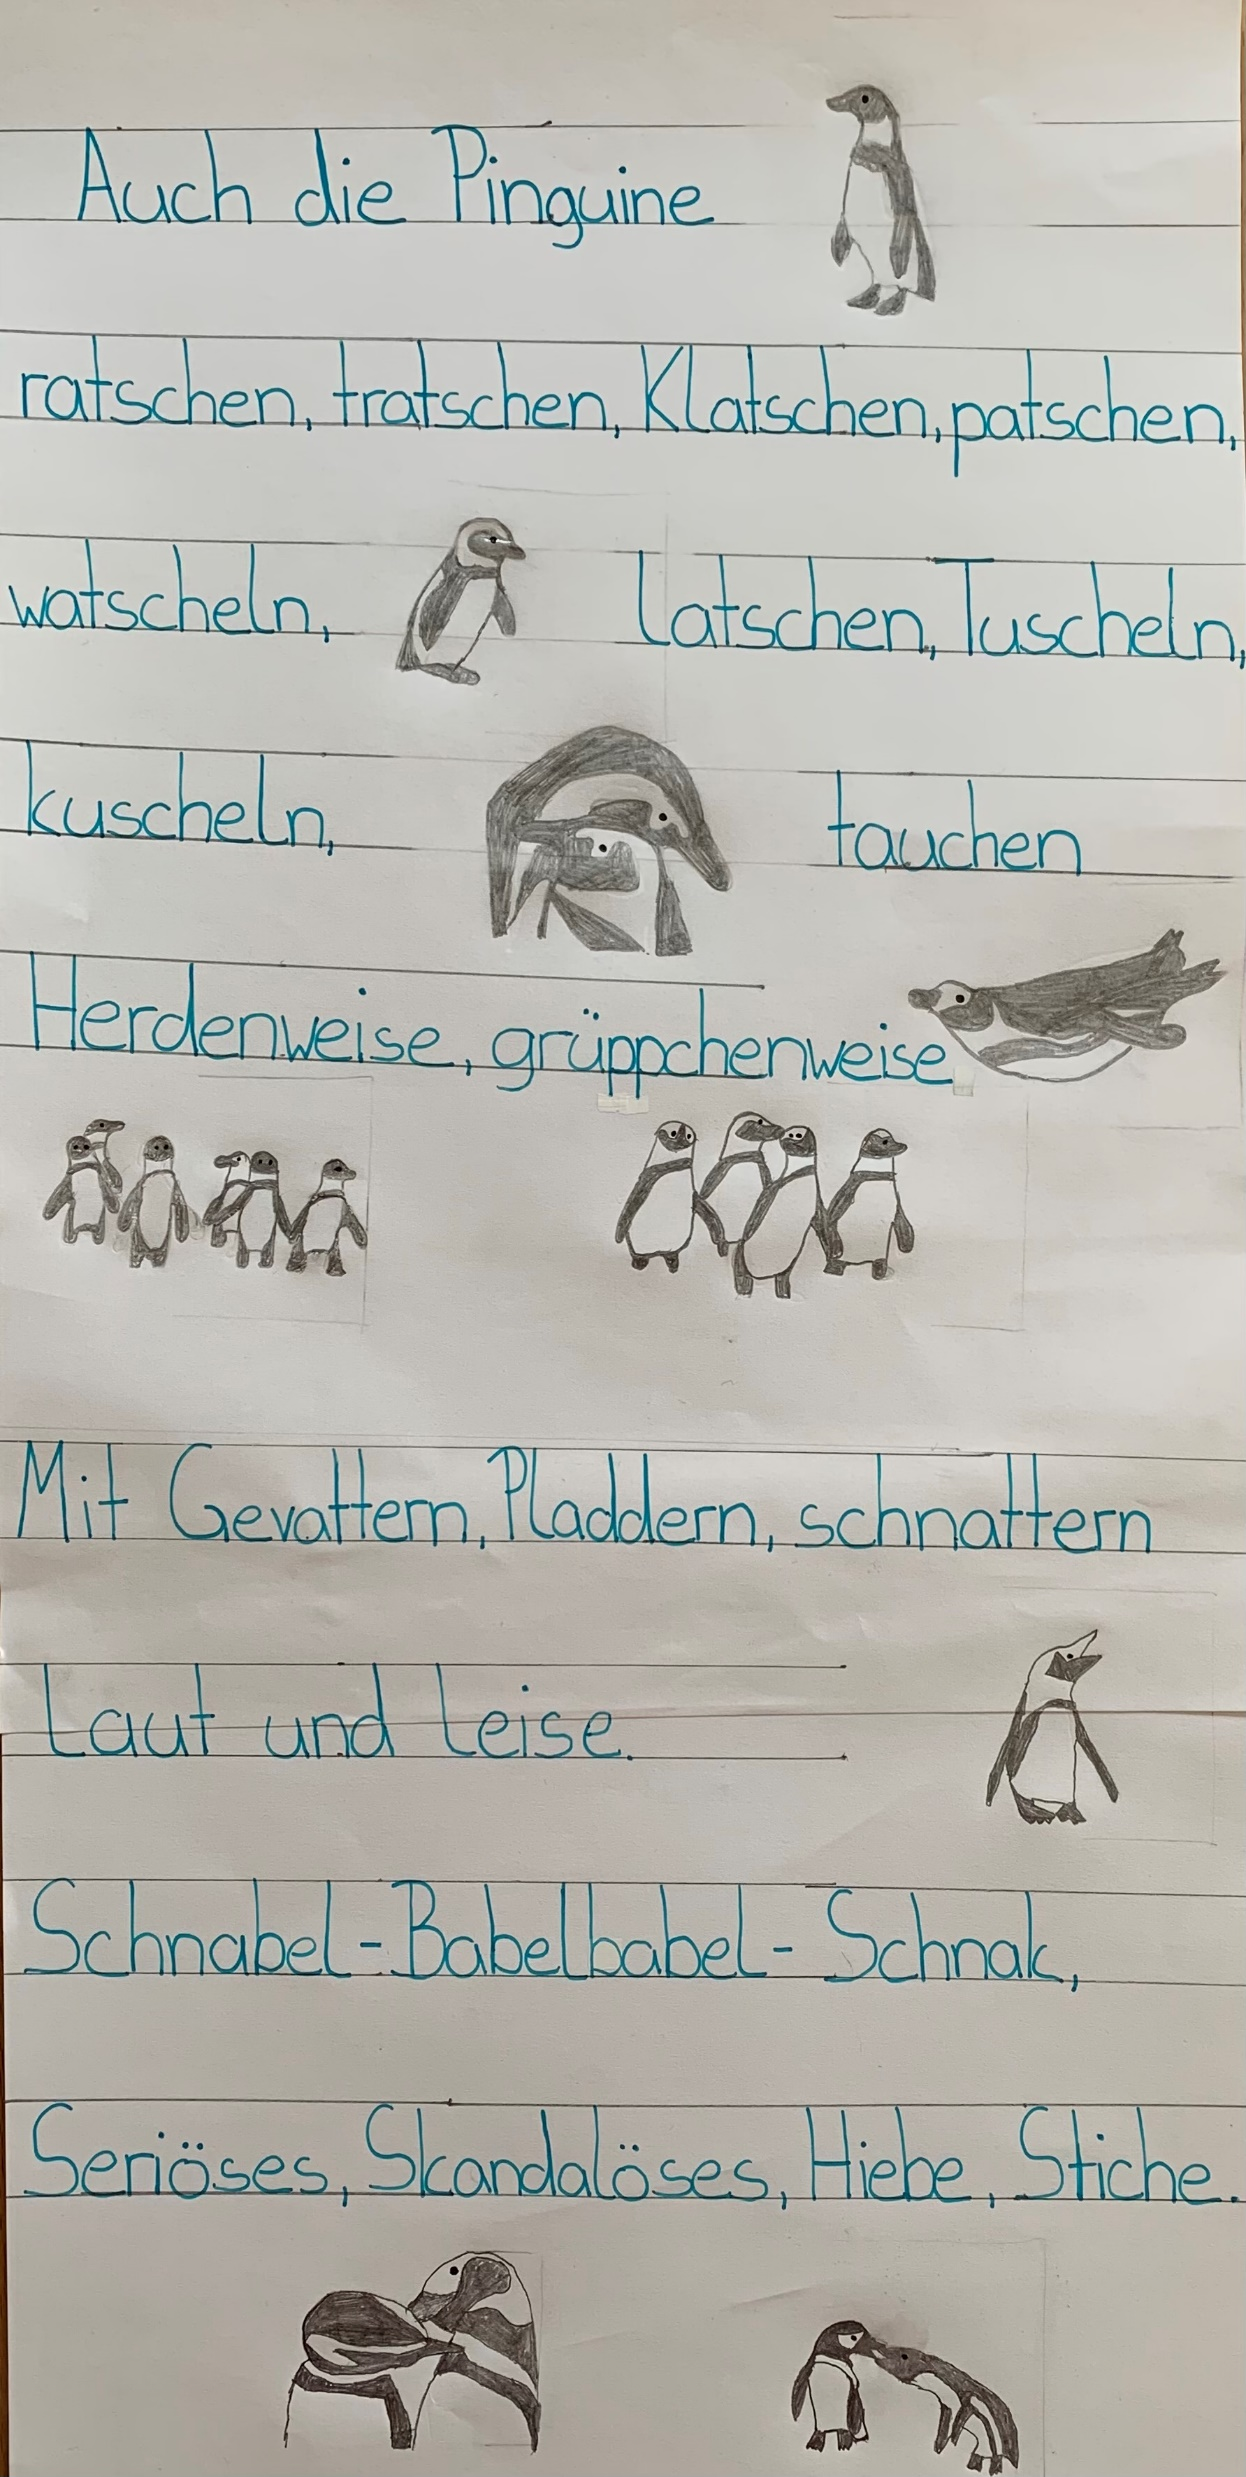 Auch die Pinguine
ratschen, tratschen, Klatschen, patschen,
watscheln, latschen, Tuscheln,
kuscheln, tauchen
Herdenweise, grüppchenweise
Mit Gevattern, Pladdern, schnattern
Laut und Leise.
Schnabel-Babelbabel-Schnak,
Seriöses, Skandalöses, Hiebe, Stiche.